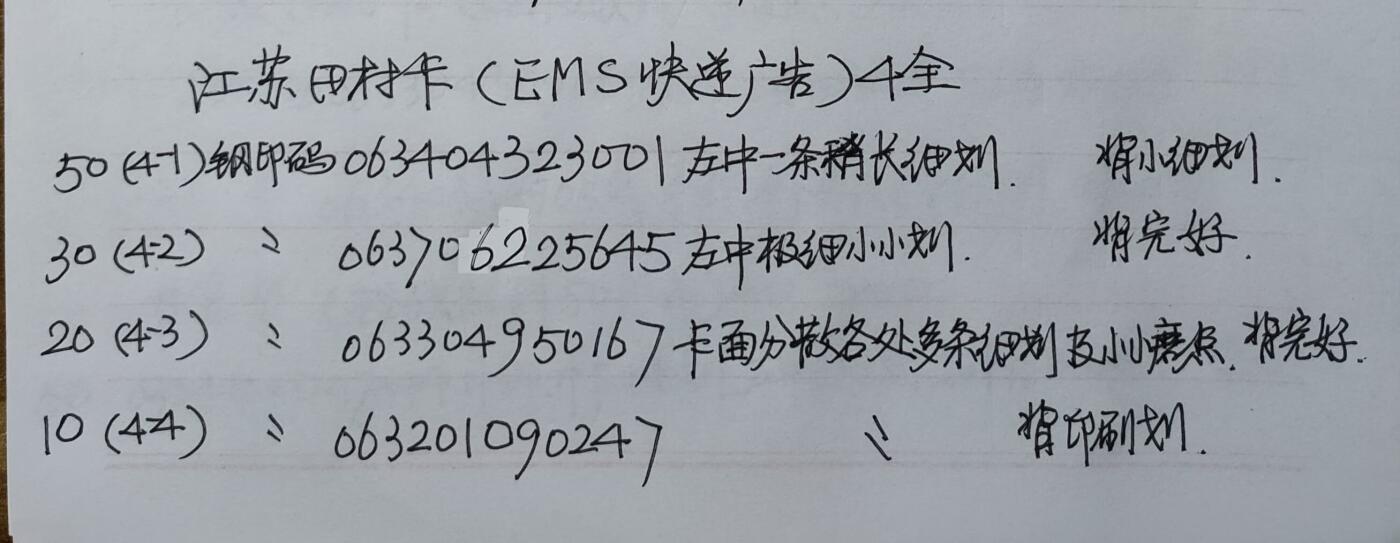 江苏田村卡(EMS快递广告)4全
50(4-1)钢印码0634043233001左中一条稍长细划. 背小细划.
30(4-2) 〃 063706225645左中极细小小划. 背完好.
20(4-3) 〃 063304950167卡面分散各处多条细划及小小磨点. 背完好.
10(4-4) 〃 063201090247 〃 背印刷划.